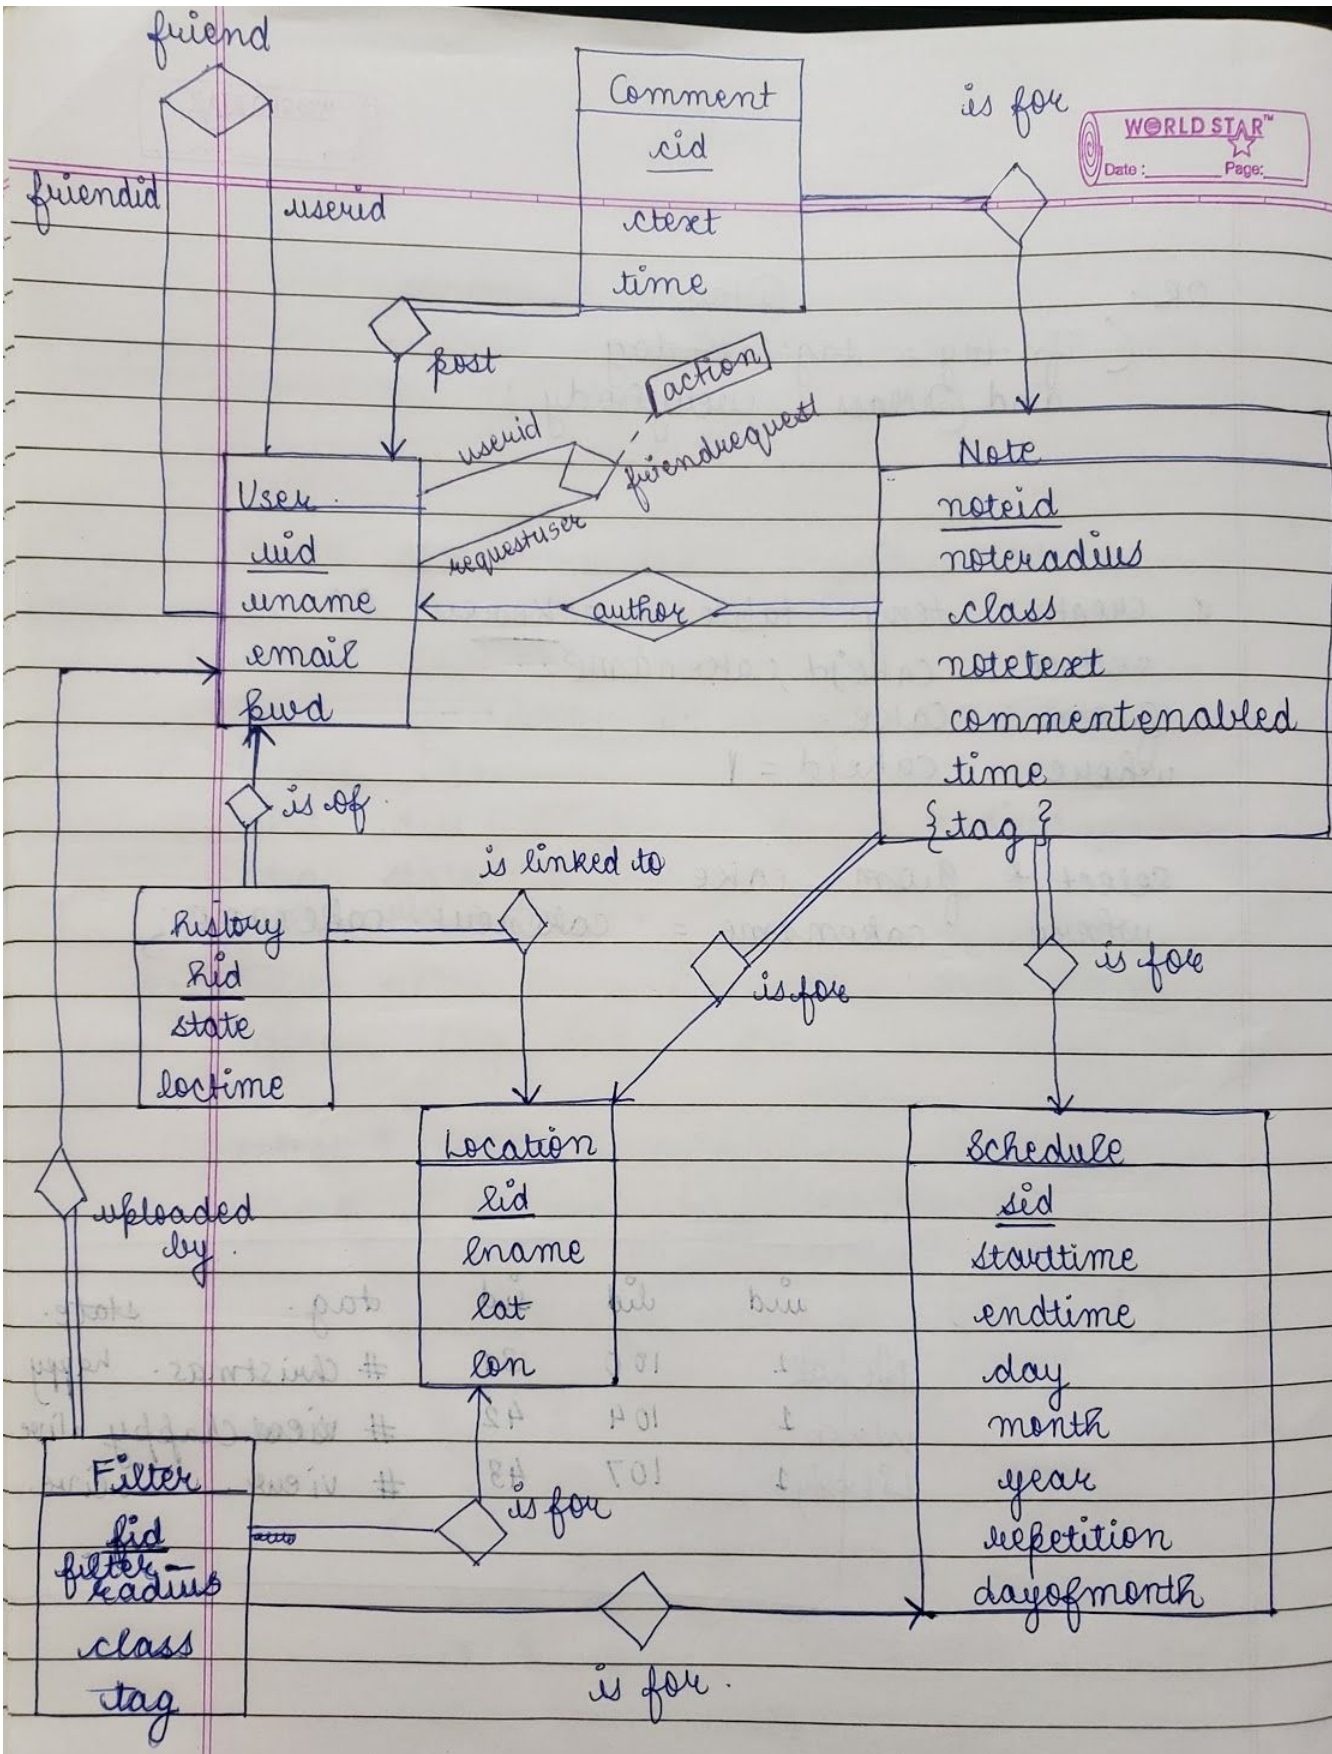 friend
friendid
userid
Comment
cid
ctext
time
is for
WORLD STAR™
Date :
Page:
post
userid
requestuser
action
friendrequest
User
uid
uname
email
pwd
author
Note
noteid
noteradius
class
notetext
commentenabled
time
{tag}
is of
is linked to
history
hid
state
loctime
is for
is for
uploaded
by
Location
lid
lname
lat
lon
Schedule
sid
starttime
endtime
day
month
year
repetition
dayofmonth
Filter
fid
filter-
radius
class
tag
is for
is for.